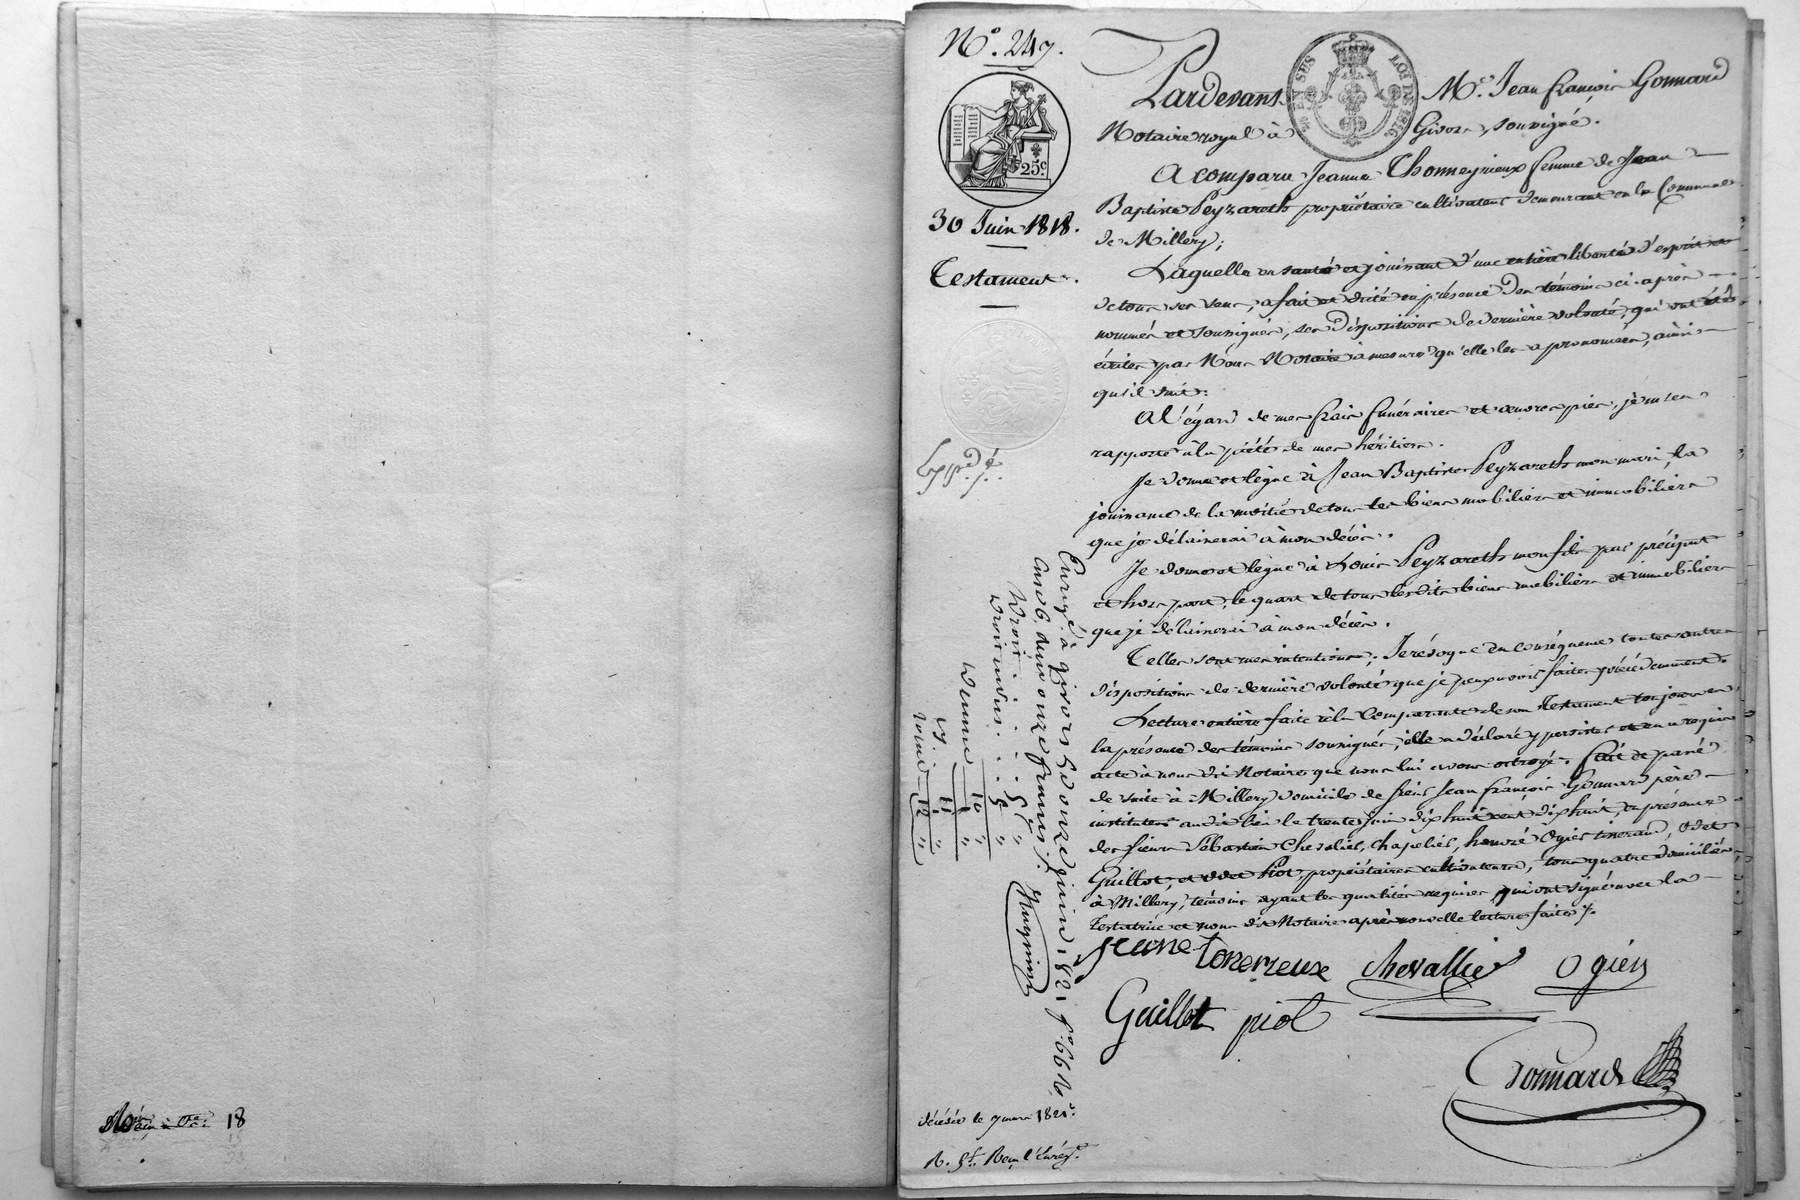 N.° 247.
25.c
30 Juin 1818.
Testament.
Exp.é
EN SUS
LOI DE 1816
Pardevant M.e Jean françois Gonnard
Notaire royal à Givors, soussigné.
A comparu Jeanne Thonneyrieux femme de Jean
Baptiste Peyzareth propriétaire cultivateur demeurant en la Commune
de Millery;
Laquelle en santé et jouissant d'une entière liberté d'esprit et
de tous ses sens, a fait et dicté en présence des témoins ci-après
nommés et soussignés, ses dispositions de dernière volonté, qui ont été
écrites par Nous Notaire à mesure qu'elle les a prononcées, ainsi
qu'il suit:
A l'égard de mes frais funéraires et œuvres pies, je m'en
rapporte à la piété de mes héritiers.
Je donne et lègue à Jean Baptiste Peyzareth mon mari, la
jouissance de la moitié de tous les biens mobiliers et immobiliers
que je délaisserai à mon décès.
Je donne et lègue à Louis Peyzareth mon fils par préciput
et hors part, le quart de tous lesdits biens mobiliers et immobiliers
que je délaisserai à mon décès.
Telles sont mes intentions; Je révoque en conséquence toutes autres
dispositions de dernière volonté que je peux avoir faites précédemment.
Lecture entière faite à la Comparante de son Testament toujours en
la présence des témoins soussignés, elle a déclaré y persister et en a requis
acte à nous dit Notaire que nous lui avons octroyé. fait et passé
de suite à Millery domicile de sieur Jean françois Gonnard père
instituteur audit lieu le trente Juin dix huit cent dix huit, en présence
des sieurs Sébastien Chevalier, Chapelier, honoré Ogier tisserand, Odet
Guillot, et Piot, propriétaires cultivateurs, tous quatre domiciliés
à Millery, témoins ayant les qualités requises qui ont signé avec la
Testatrice et nous dit Notaire après nouvelle lecture faite./.
Jeane Tonerieux chevallier ogier
Guillot piot
Gonnard
Enreg.é à givors le onze juin 1821 f.o 66 R.o
Case 6, reçu onze francs./.
Droit . . . 5 "
Droit en sus . . 5 "
10 "
Décime 1 "
11 "
12 "
décédée le 9 mars 1821.
18